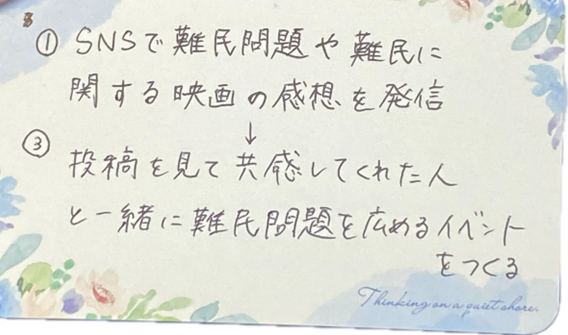 ① SNSで難民問題や難民に
関する映画の感想を発信
↓
③ 投稿を見て共感してくれた人
と一緒に難民問題を広めるイベント
をつくる
Thinking on a quiet shore.